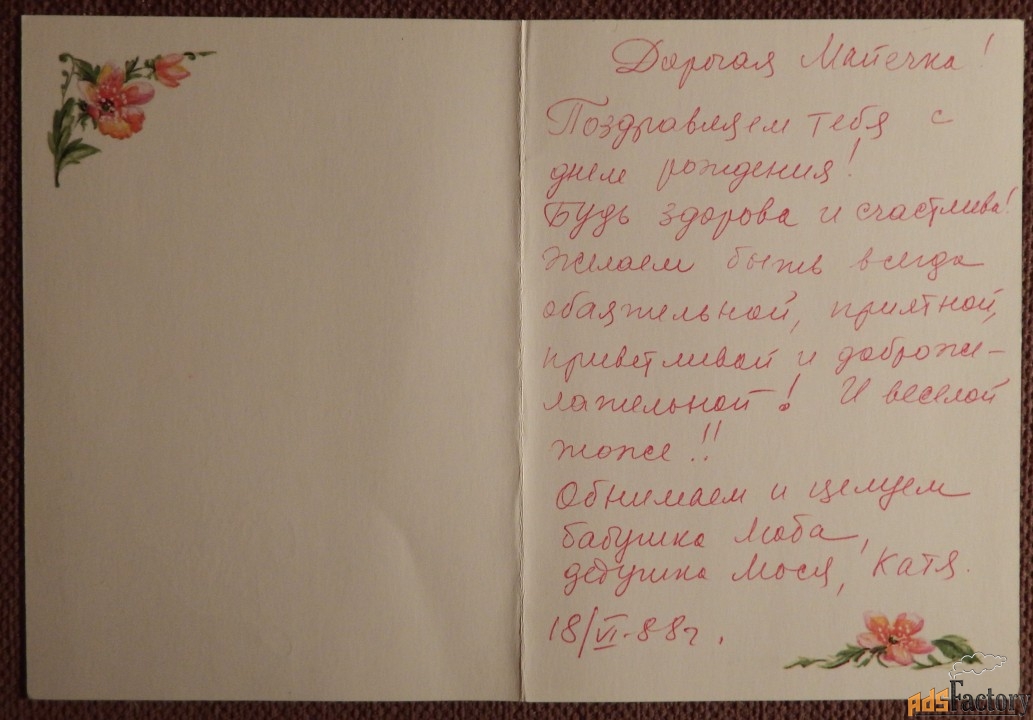 Дорогая Маечка!
Поздравляем тебя с
днем рождения!
Будь здорова и счастлива!
Желаем быть всегда
обаятельной, приятной,
приветливой и доброже-
лательной! И веселой
тоже!!
Обнимаем и целуем
бабушка Люба,
дедушка Мося, Катя.
18/VI-88г.
AdsFactory